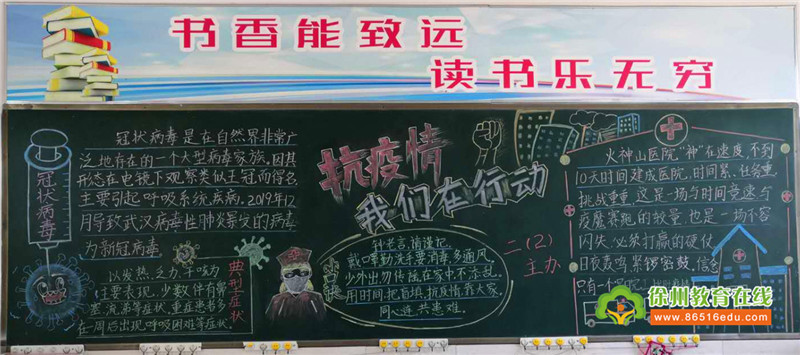 书香能致远
读书乐无穷
冠状病毒
冠状病毒是在自然界非常广
泛地存在的一个大型病毒家族,因其
形态在电镜下观察类似王冠而得名,
主要引起呼吸系统疾病。2019年12
月导致武汉病毒性肺炎暴发的病毒
为新冠病毒
以发热、乏力、干咳为
主要表现,少数伴有鼻
塞、流涕等症状,重症患者多
在一周后出现呼吸困难等症状。
典型症状
抗疫情
我们在行动
口诀
听老言,情谨记,
戴口罩勤洗手要消毒,多通风,
少外出勿传谣在家中不添乱
用时间,把
抗疫情靠大家,
同心连共患难。
二(2)
主办
火神山医院“神”在速度,不到
10天时间建成医院,时间紧、任务重、
挑战重重,这是一场与时间竞速与
疫魔赛跑的较量,也是一场不容
闪失、必须打赢的硬仗
日夜轰鸣、紧锣密鼓,信念
只有一个
徐州教育在线
www.86516edu.com